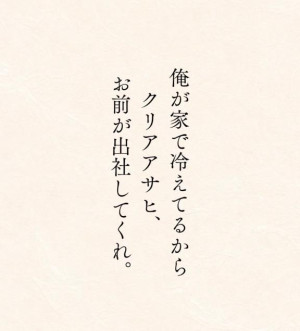 俺が家で冷えてるから
クリアアサヒ、
お前が出社してくれ。